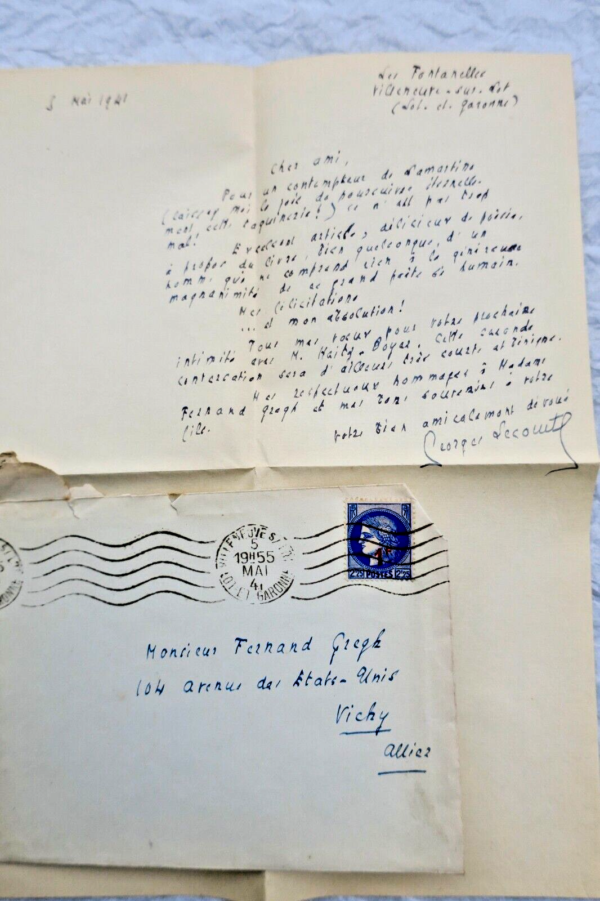 5 Mai 1941
Les Fontanelles
Villeneuve-sur-Lot
(Lot. et. Garonne)
Cher ami,
Pour un contempteur de Lamartine
(laissez moi la joie de poursuivre
mort, cette taquinerie!) ce n'est pas trop
mal!
Excellent article, délicieux de poésie,
à propos du livre, bien quelconque, d'un
homme qui ne comprend rien à la généreuse
magnanimité de ce grand poète si humain.
Mes félicitations
... et mon absolution!
Tous mes vœux pour votre prochaine
intimité avec M. Cette seconde
sera d'ailleurs très courte et bénigne.
Mes respectueux hommages à Madame
Fernand Gregh et mes bons souvenirs à votre
fils.
Votre bien amicalement dévoué
Georges Lecomte
VILLENEUVE S/ LOT
5
19H55
MAI
41
LOT-ET-GARONNE
1F
2F75 POSTES 2F75
Monsieur Fernand Gregh
104 avenue des Etats-Unis
Vichy
Allier